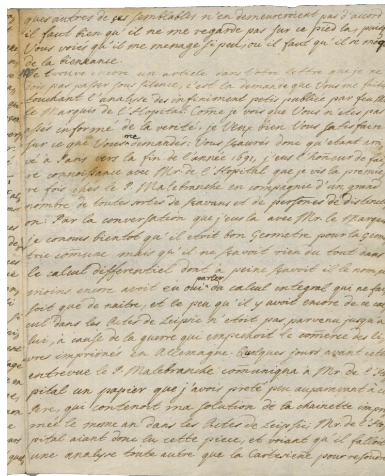 ques autres de ses semblables n'en demeureroient pas d'accord
il faut bien qu'il ne me regarde pas sur ce pied la, puisque
Vous voiés qu'il me menage si peu, ou il faut qu'il se moque
de la bienseance.
Je trouve encore un article dans Votre lettre que je ne
dois pas passer sous silence, c'est la demande que Vous me faites
touchant l'analyse des infiniment petis publiée par feu
le Marquis de l'Hopital: Come je vois que Vous n'etes pas
assés informé de la verité, je veux bien Vous satisfaire
sur ce que Vous me demandés: Vous saurés donc qu'etant arri-
vé à Paris vers la fin de l'année 1691, j'eus l'honneur de faire
la connoissance avec Mr. de l'Hopital que je vis la premie-
re fois chés le P. Malebranche en compagnie d'un grand
nombre de toutes sortes de sçavans et de persones de distincti-
on: Par la conversation que j'eus la avec Mr. le Marquis
je connus bientot qu'il etoit bon Geometre pour la Geome-
trie comune mais qu'il ne sçavoit rien du tout dans
le calcul differentiel dont à peine sçavoit il le nom, et
moins encore avoit il oui parler du calcul integral qui ne fai-
soit que de naitre, et le peu qu'il y avoit encore de ce cal-
cul dans les Actes de Leipsic n'etoit pas parvenu jusqu'à
lui, à cause de la guerre qui empechoit le comerce des li-
vres imprimés en Allemagne. Quelques jours avant cette
entrevue le P. Malebranche comuniqua à Mr. de l'Ho-
pital un papier que j'avois preté peu auparavant à ce
Pere, qui contenoit ma solution de la chainette impri-
mée le meme an dans les Actes de Leipsic; Mr. de l'Ho-
pital aiant donc lu cette piece, et voiant qu'il falloit
une analyse toute autre que la Cartesiene pour resoudre